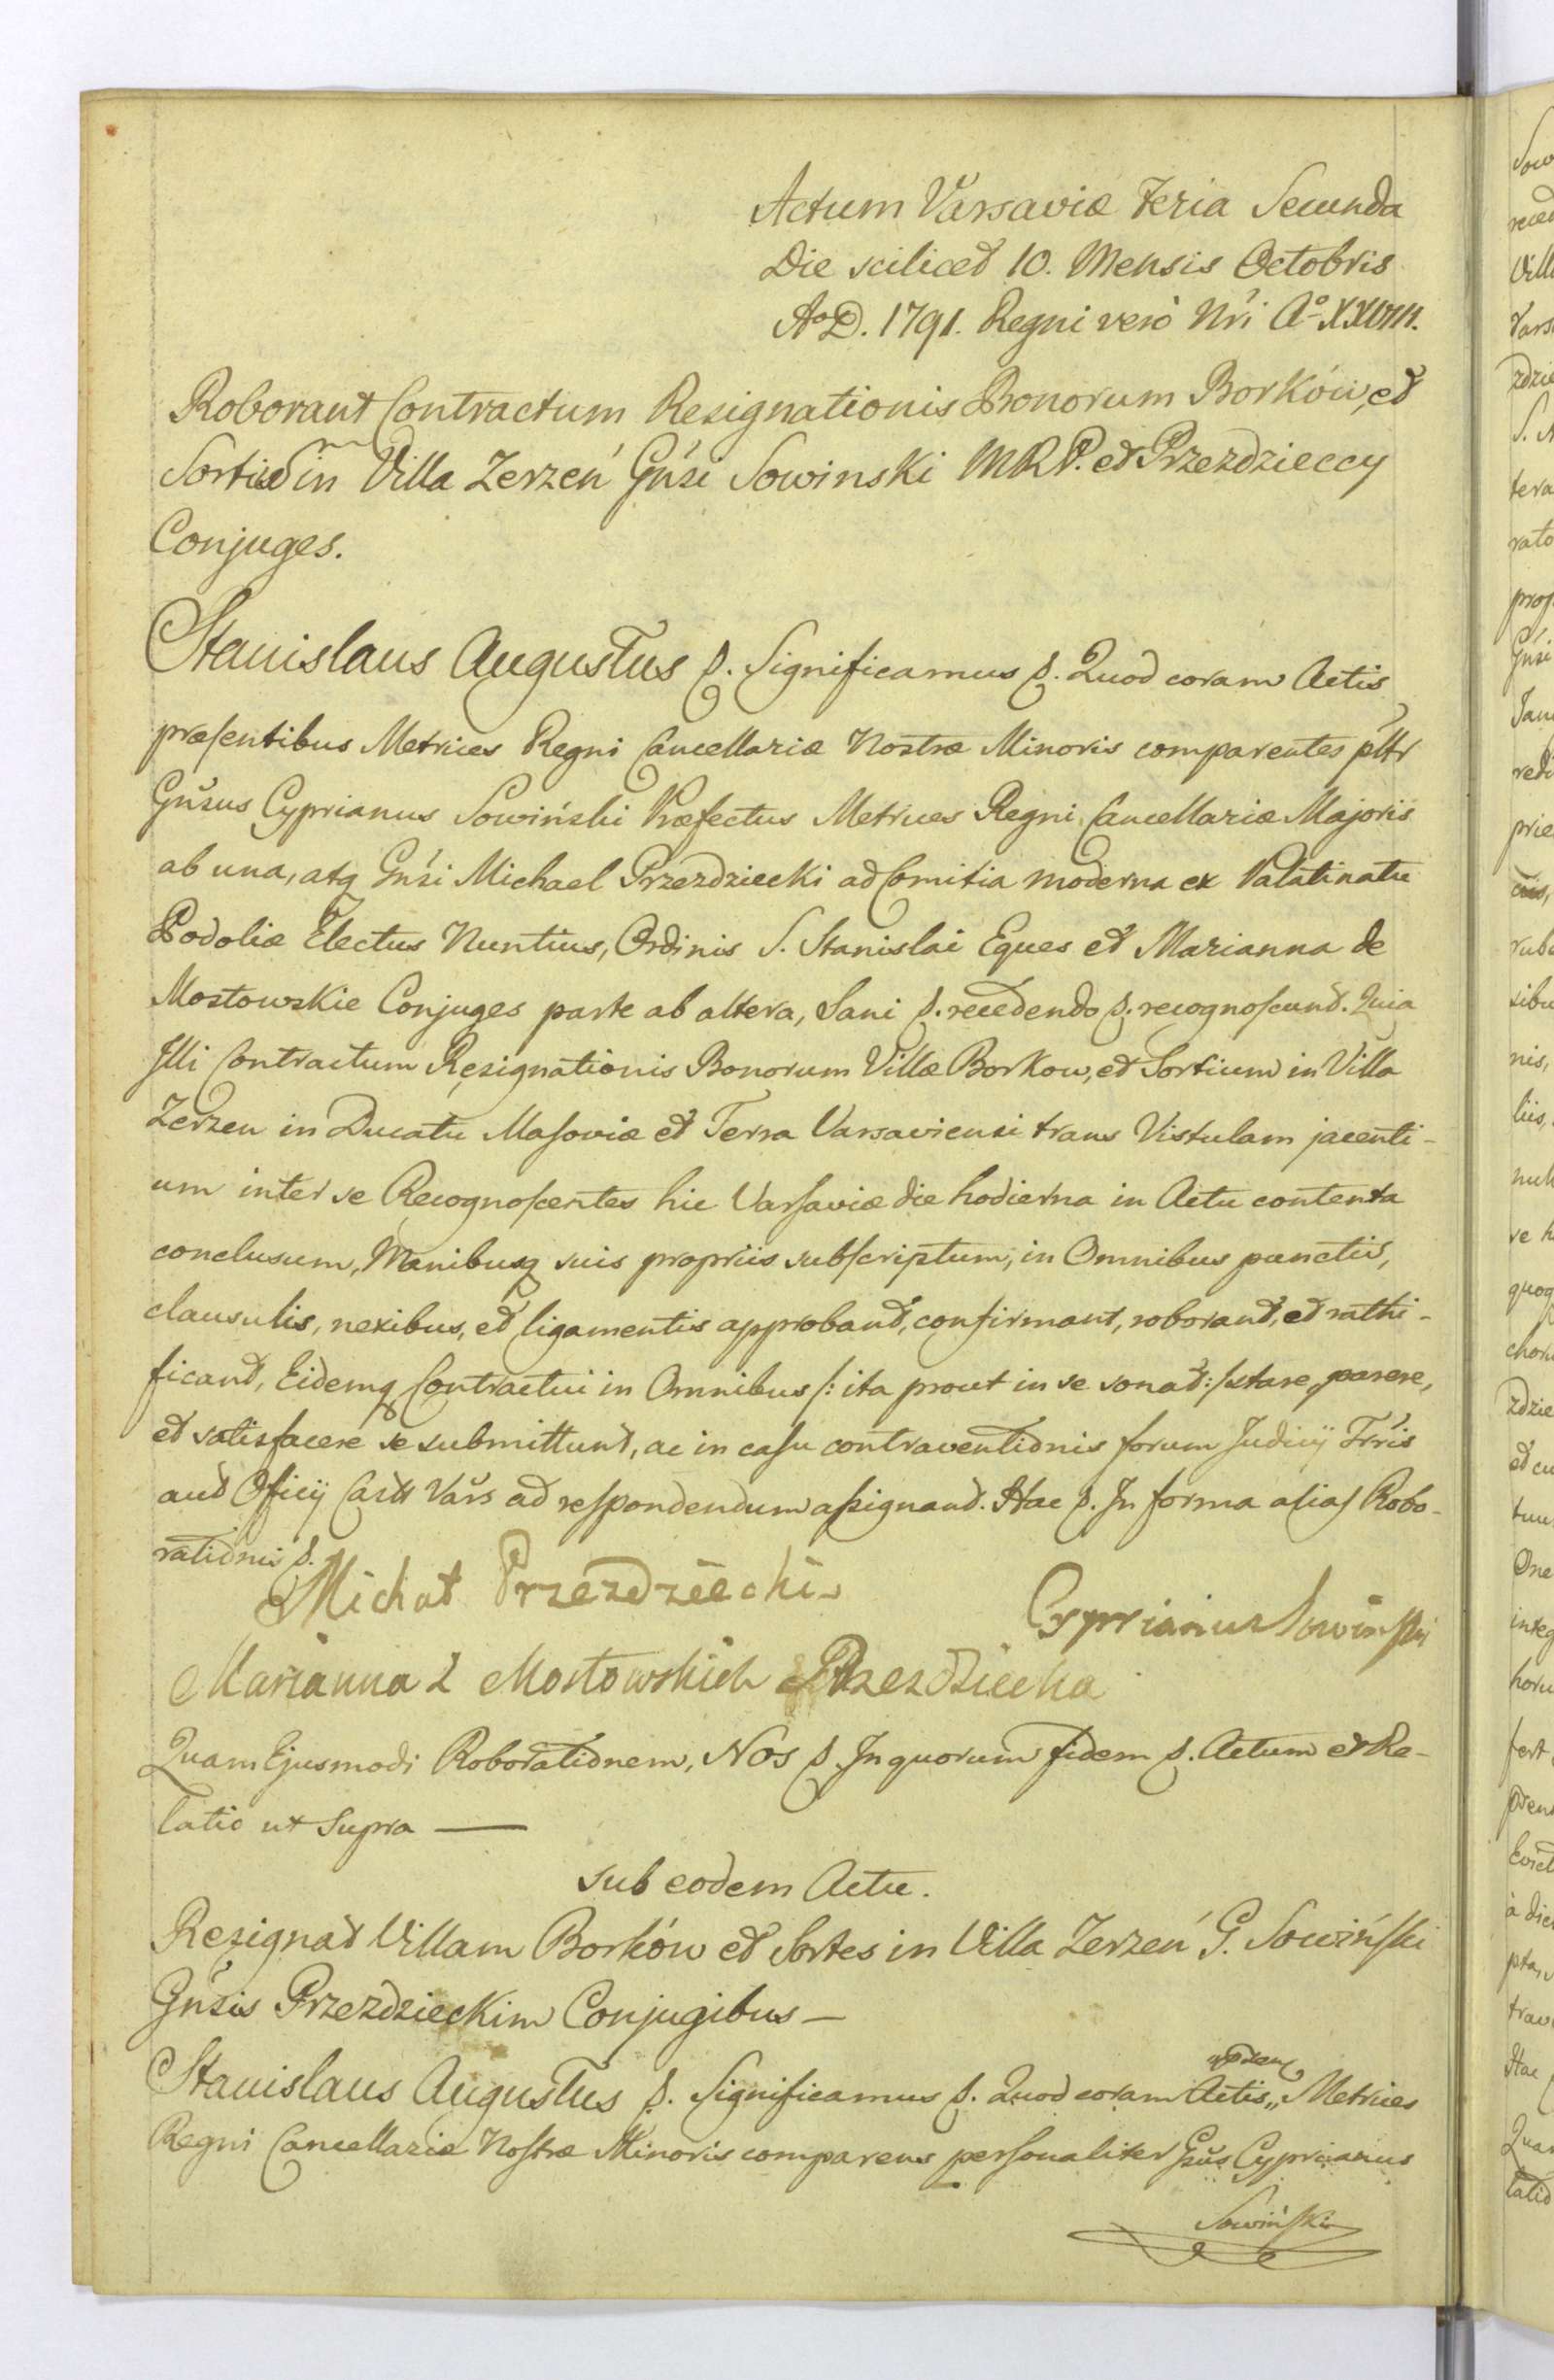 Actum Varsaviæ Feria Secunda
Die scilicet 10. Mensis Octobris
Aō D. 1791. Regni verò Nri A° XXVIII.
Roborant Contractum Resignationis Bonorum Borków, et
Sortium in Villa Zerzeń Gnsi Sowinski MRP. et Przezdzieccy
Conjuges.
Stanislaus Augustus &. Significamus &. Quod coram Actis
præsentibus Metrices Regni Cancellariæ Nostræ Minoris comparentes pltr
Gnsus Cyprianus Sowiński Præfectus Metrices Regni Cancellariæ Majoris
ab una, atq Gnsi Michael Przezdziecki ad Comitia moderna ex Palatinatu
Podoliæ Electus Nuntius, Ordinis S. Stanislai Eques et Marianna de
Mostowskie Conjuges parte ab altera, Sani &. recedendo &. recognoscunt. Quia
Illi Contractum Resignationis Bonorum Villæ Borkow, et Sortium in Villa
Zerzen in Ducatu Masoviæ et Terra Varsaviensi trans Vistulam jacenti-
um inter se Recognoscentes hic Varsaviæ die hodierna in Actu contenta
conclusum, Manibusq suis propriis subscriptum, in Omnibus punctis,
clausulis, nexibus, et ligamentis approbant, confirmant, roborant, et rathi-
ficant, Eidemq Contractui in Omnibus /: ita prout in se sonat :/ stare, parere,
et satisfacere se submittunt, ac in casu contraventionis forum Judicij Trris
aut Officij Castr Vars ad respondendum assignant. Hac &. In forma alias Robo-
rationis &.
Michał Przezdziecki
Cyprianus Sowinski
Marianna z Mostowskich Przezdziecka
Quam Ejusmodi Roborationem, Nos &. In quorum fidem &. Actum et Re-
latio ut Supra —
sub eodem Actu.
Resignat Villam Borków et Sortes in Villa Zerzeń G. Sowiński
Gnsis Przezdzieckim Conjugibus —
Stanislaus Augustus &. Significamus &. Quod coram Actis,, Metrices
Regni Cancellariæ Nostræ Minoris comparens personaliter Gsus Cyprianus
Sowiński